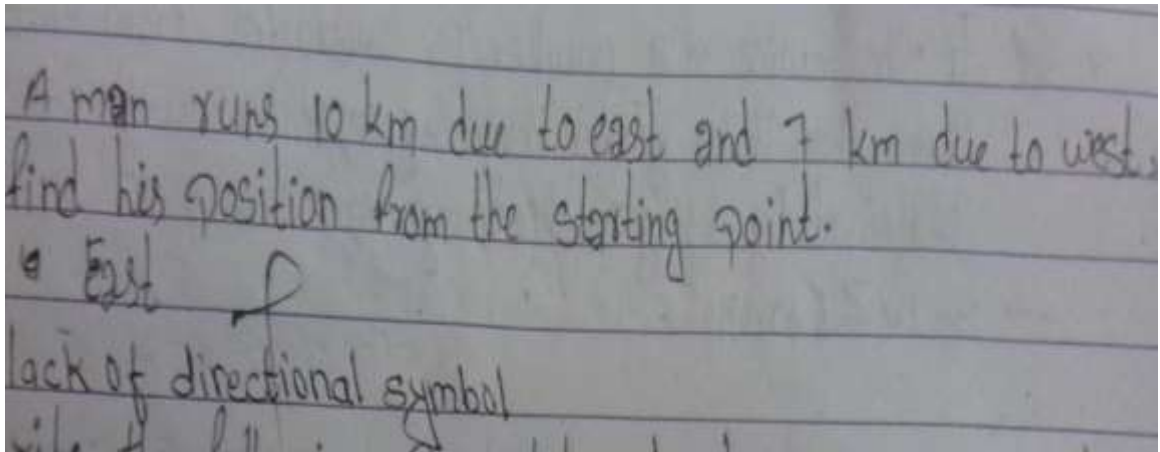 A man runs 10 km due to east and 7 km due to west,
find his position from the starting point.
East
lack of directional symbol